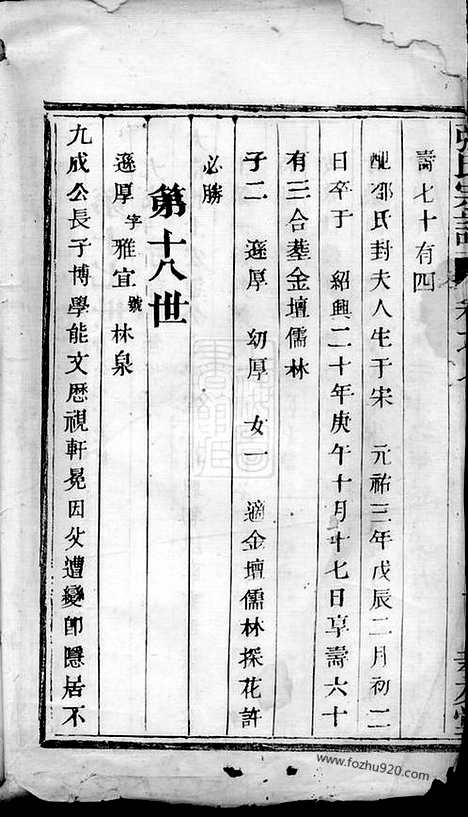 壽七十有四
配鄒氏封夫人生于宋　元祐三年戊辰二月初二
日卒于　紹興二十年庚午十月十七日享壽六十
有三合塟金壇儒林
子二　遜厚　幼厚　女一　適金壇儒林探花許
必勝
第十八世
遜厚字雅宜號林泉
九成公長子博學能文歷視軒冕因父遭變卽隱居不
www.fozhu920.com